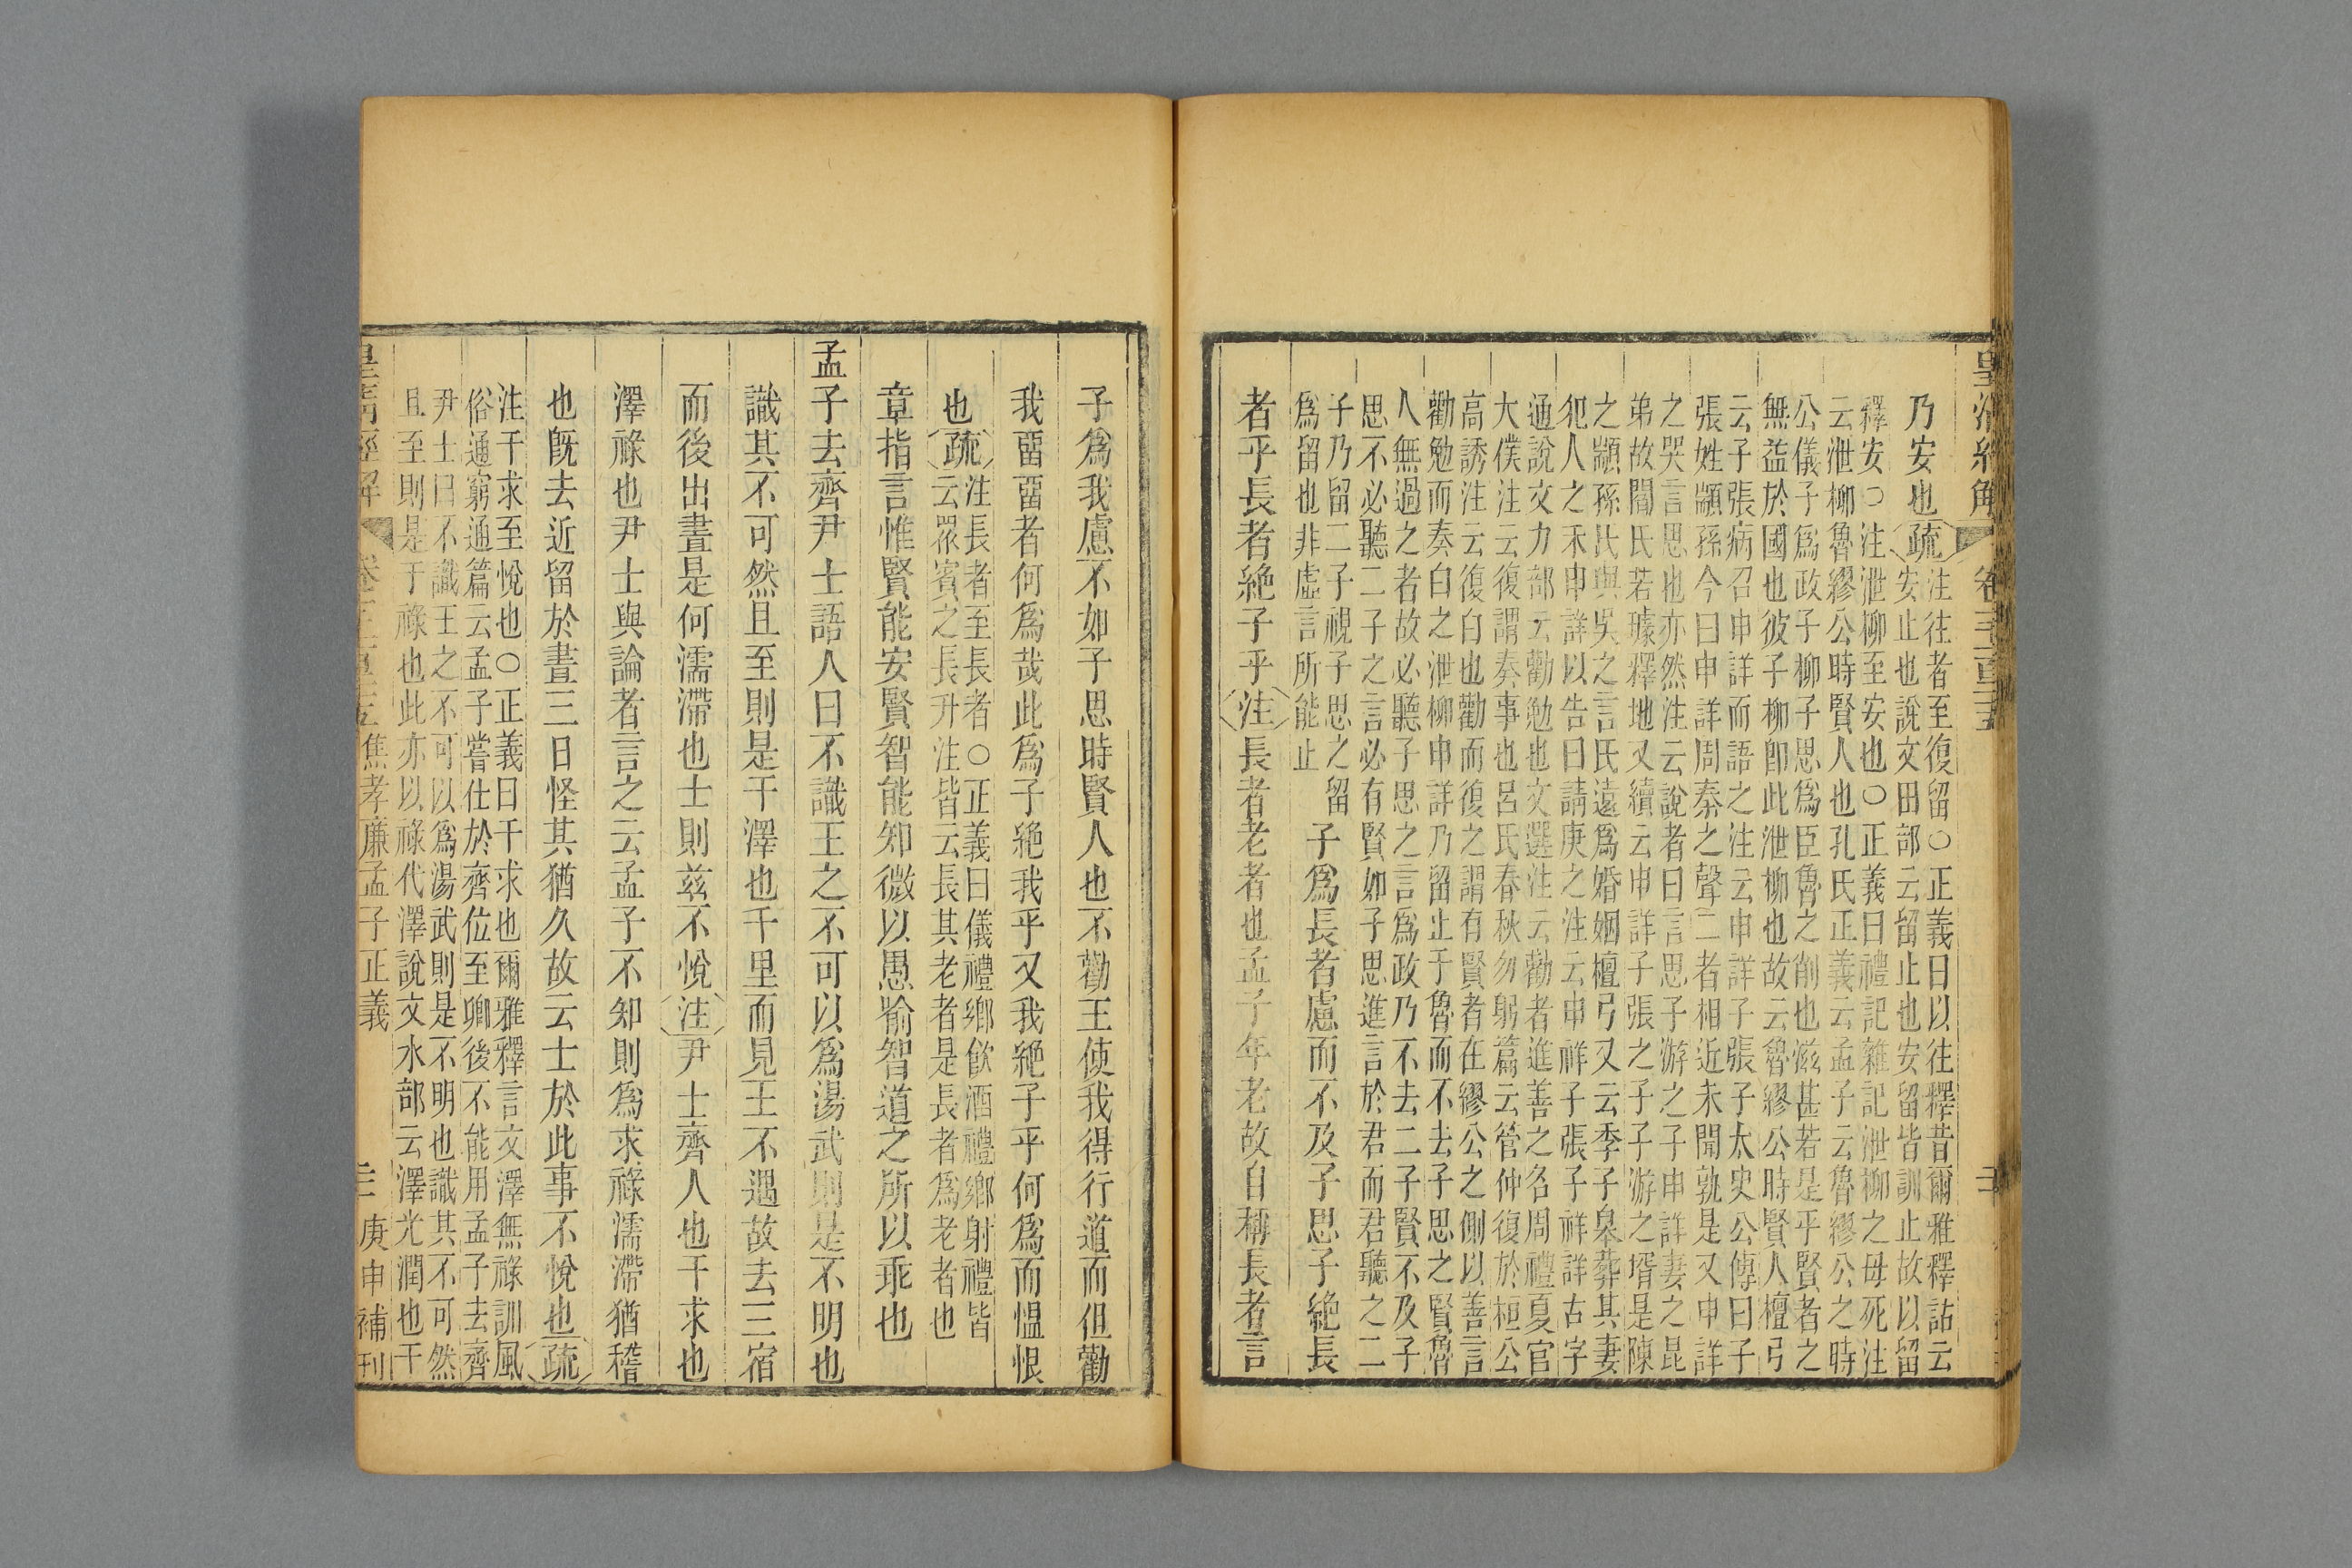 皇清經解
卷千一百二十五
乃安也疏
注往者至復留○正義曰以往釋昔爾雅釋詁云
安止也說文田部云留止也安留皆訓止故以留
釋安○注泄柳至安也○正義曰禮記雜記泄柳之母死注
云泄柳魯繆公時賢人也孔氏正義云孟子云魯繆公之時
公儀子爲政子柳子思爲臣魯之削也滋甚若是乎賢者之
無益於國也彼子柳卽此泄柳也故云魯繆公時賢人檀弓
云子張病召申詳而語之注云申詳子張子太史公傳曰子
張姓顓孫今曰申詳周秦之聲二者相近未聞孰是又申詳
之哭言思也亦然注云說者曰言思子游之子申詳妻之昆
弟故閻氏若璩釋地又續云申詳子張之子子游之壻是陳
之顓孫氏與吳之言氏遠爲婚姻檀弓又云季子皋葬其妻
犯人之禾申詳以告曰請庚之注云申祥子張子祥詳古字
通說文力部云勸勉也文選注云勸者進善之名周禮夏官
大僕注云復謂奏事也呂氏春秋勿躬篇云管仲復於桓公
高誘注云復白也勸而復之謂有賢者在繆公之側以善言
勸勉而奏白之泄柳申詳乃留止于魯而不去子思之賢魯
人無過之者故必聽子思之言爲政乃不去二子賢不及子
思不必聽二子之言必有賢如子思進言於君而君聽之二
子乃留二子視子思之留
爲留也非虛言所能止
子爲長者慮而不及子思子絶長
者乎長者絶子乎注長者老者也孟子年老故自稱長者言
子爲我慮不如子思時賢人也不勸王使我得行道而但勸
我畱畱者何爲哉此爲子絶我乎又我絶子乎何爲而慍恨
也疏
注長者至長者○正義曰儀禮鄉飮酒禮鄉射禮皆
云衆賓之長升注皆云長其老者是長者爲老者也
章指言惟賢能安賢智能知微以愚喻智道之所以乖也
孟子去齊尹士語人曰不識王之不可以爲湯武則是不明也
識其不可然且至則是干澤也千里而見王不遇故去三宿
而後出晝是何濡滯也士則兹不悅注尹士齊人也干求也
澤祿也尹士與論者言之云孟子不知則爲求祿濡滯猶稽
也旣去近留於晝三日怪其猶久故云士於此事不悅也疏
注干求至悅也○正義曰干求也爾雅釋言文澤無祿訓風
俗通窮通篇云孟子嘗仕於齊位至卿後不能用孟子去齊
尹士曰不識王之不可以爲湯武則是不明也識其不可然
且至則是于祿也此亦以祿代澤說文水部云澤光潤也干
皇淸經解
焦孝廉孟子正義
庚申補刊